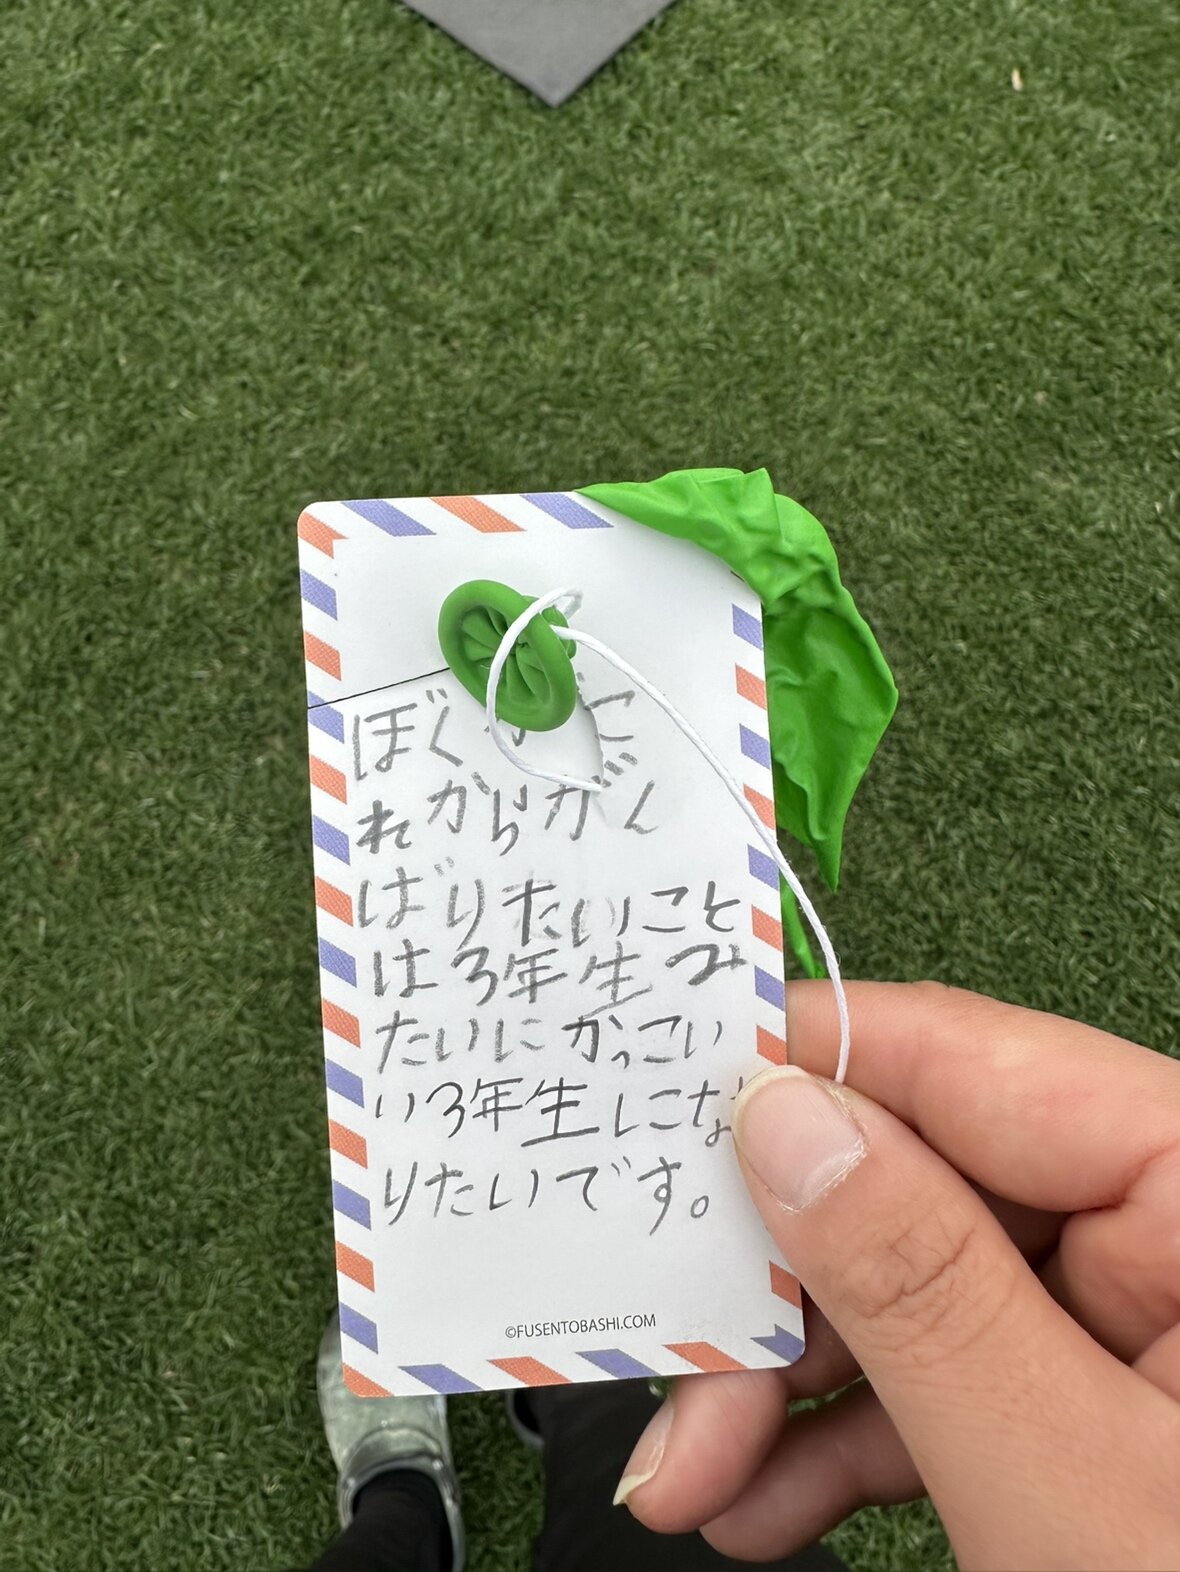 ぼくがこ
れからがん
ばりたいこと
は3年生み
たいにかっこい
い3年生にな
りたいです。
©FUSENTOBASHI.COM